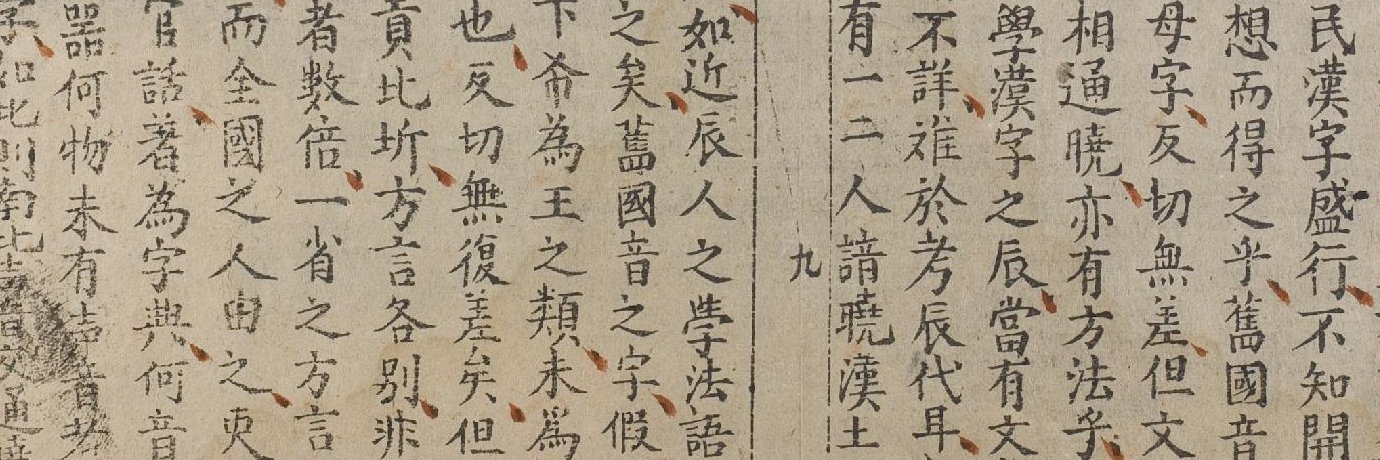 民漢字盛行不知開
想而得之乎舊國音
母字反切無差但文
相通曉亦有方法乎
學漢字之辰當有文
不詳难於考辰代耳
有一二人諳曉漢土
九
如近辰人之学法語
之矣舊國音之字假
下希為王之類未爲
也反切無復差矣但
貢比圻方言各别非
者數倍一省之方言
而全國之人由之更
官話著為字典何音
噐何物未有声音者
字如此則南北